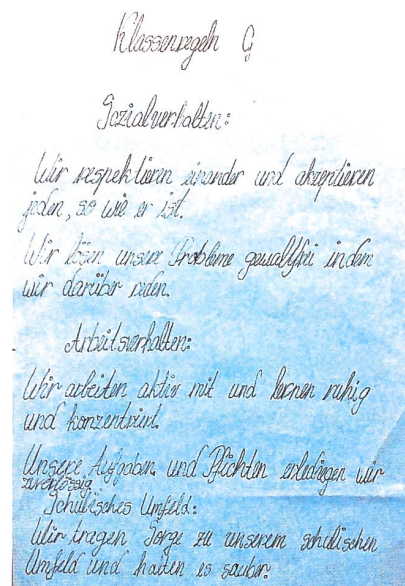 Klassenregeln G
Sozialverhalten:
Wir respektieren einander und akzeptieren
jeden, so wie er ist.
Wir lösen unsere Probleme gewaltfrei indem
wir darüber reden.
Arbeitsverhalten:
Wir arbeiten aktiv mit und lernen ruhig
und konzentriert.
Unsere Aufgaben und Pflichten erledigen wir
zuverlässig
Schulisches Umfeld:
Wir tragen Sorge zu unserem schulischen
Umfeld und halten es sauber.